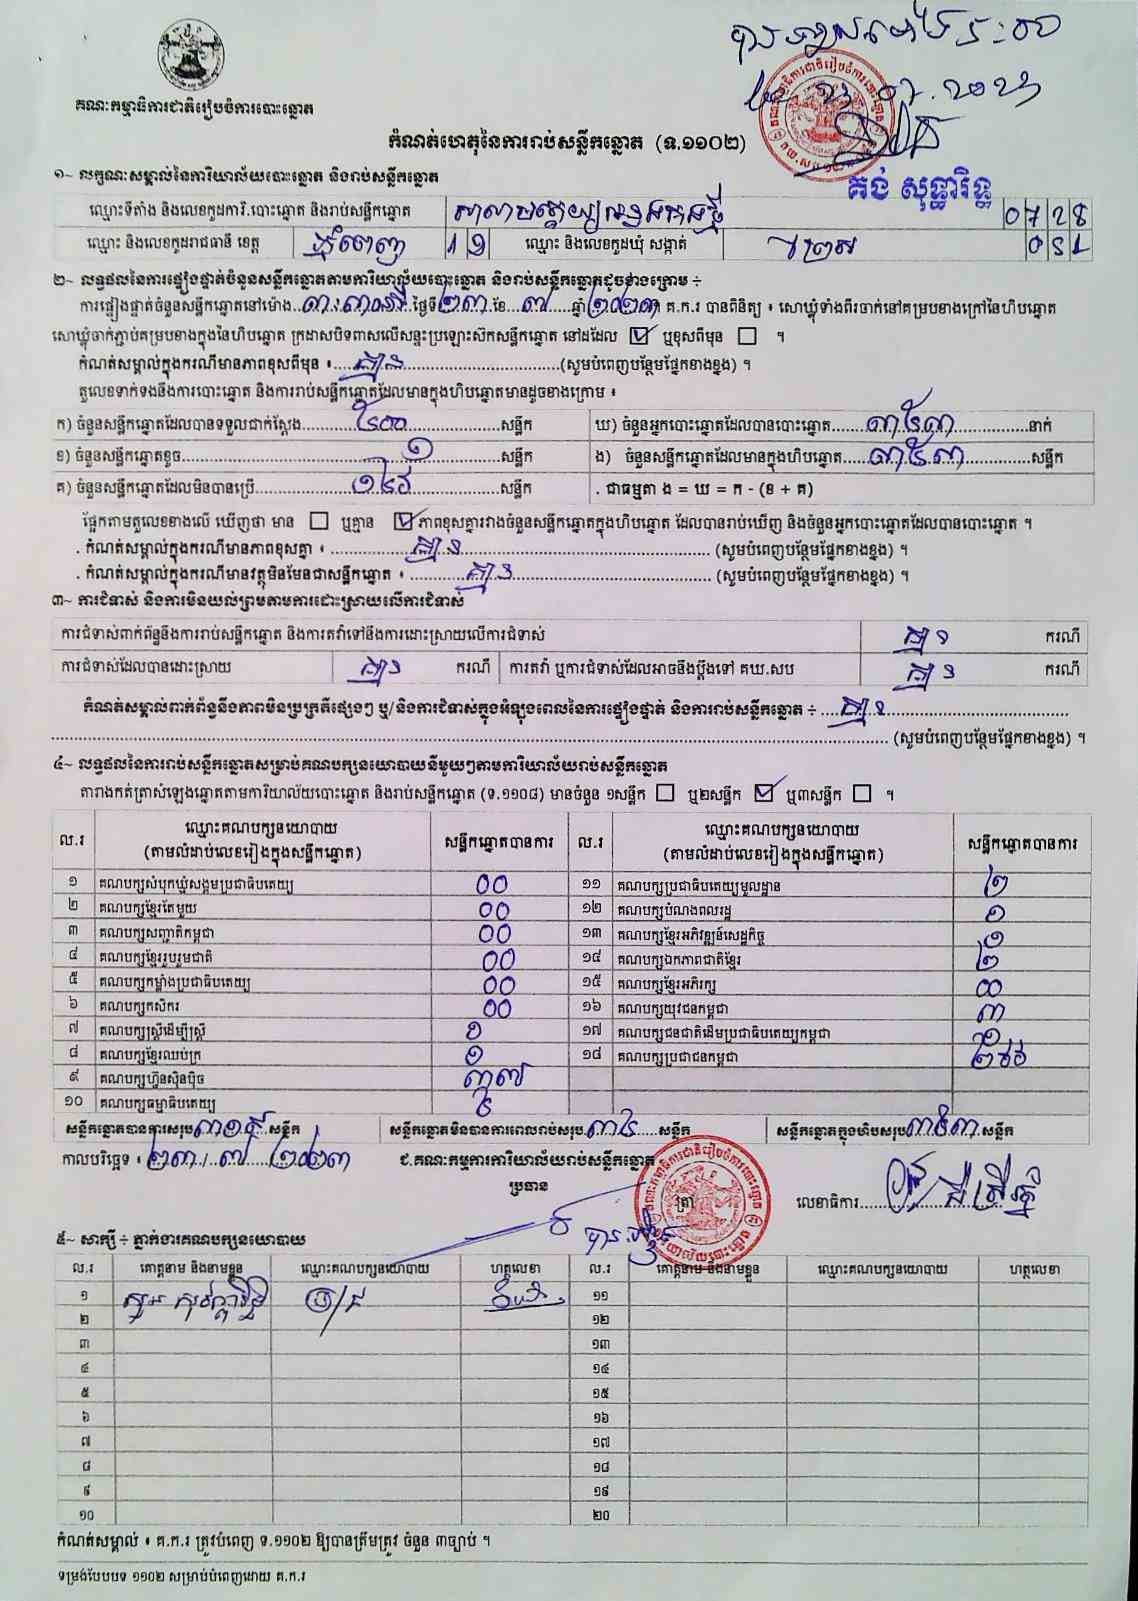 គណៈកម្មាធិការជាតិរៀបចំការបោះឆ្នោត
កំណត់ហេតុនៃការរាប់សន្លឹកឆ្នោត (ទ.១១០២)
គង់ សុទ្ធារិទ្ធ
១~ លក្ខណៈសម្គាល់នៃការិយាល័យបោះឆ្នោត និងរាប់សន្លឹកឆ្នោត
ឈ្មោះទីតាំង និងលេខកូដការិ.បោះឆ្នោត និងរាប់សន្លឹកឆ្នោត 0728
ឈ្មោះ និងលេខកូដរាជធានី ខេត្ត ភ្នំពេញ ឈ្មោះ និងលេខកូដឃុំ សង្កាត់
២~ លទ្ធផលនៃការផ្ទៀងផ្ទាត់ចំនួនសន្លឹកឆ្នោតតាមការិយាល័យបោះឆ្នោត និងរាប់សន្លឹកឆ្នោតដូចខាងក្រោម ÷
ការផ្ទៀងផ្ទាត់ចំនួនសន្លឹកឆ្នោតនៅម៉ោង ថ្ងៃទី ២៣ ខែ ៧ ឆ្នាំ ២០២៣ គ.ក.រ បានពិនិត្យ ៖ សោឃ្លុំទាំងពីរចាក់នៅគម្របខាងក្រៅនៃហិបឆ្នោត
សោឃ្លុំចាក់ភ្ជាប់គម្របខាងក្នុងនៃហិបឆ្នោត ក្រដាសបិទពាសលើសន្ទះប្រឡោះស៊កសន្លឹកឆ្នោត នៅដដែល ☑ ឬខុសពីមុន ☐ ។
កំណត់សម្គាល់ក្នុងករណីមានភាពខុសពីមុន ៖ គ្មាន (សូមបំពេញបន្ថែមផ្នែកខាងខ្នង) ។
តួលេខទាក់ទងនឹងការបោះឆ្នោត និងការរាប់សន្លឹកឆ្នោតដែលមានក្នុងហិបឆ្នោតមានដូចខាងក្រោម ៖
ក) ចំនួនសន្លឹកឆ្នោតដែលបានទទួលជាក់ស្តែង ៥០០ សន្លឹក ឃ) ចំនួនអ្នកបោះឆ្នោតដែលបានបោះឆ្នោត ៣៥៣ នាក់
ខ) ចំនួនសន្លឹកឆ្នោតខូច ១ សន្លឹក ង) ចំនួនសន្លឹកឆ្នោតដែលមានក្នុងហិបឆ្នោត ៣៥៣ សន្លឹក
គ) ចំនួនសន្លឹកឆ្នោតដែលមិនបានប្រើ ១៤៦ សន្លឹក . ជាធម្មតា ង = ឃ = ក - (ខ + គ)
ផ្អែកតាមតួលេខខាងលើ ឃើញថា មាន ☐ ឬគ្មាន ☑ ភាពខុសគ្នារវាងចំនួនសន្លឹកឆ្នោតក្នុងហិបឆ្នោត ដែលបានរាប់ឃើញ និងចំនួនអ្នកបោះឆ្នោតដែលបានបោះឆ្នោត ។
. កំណត់សម្គាល់ក្នុងករណីមានភាពខុសគ្នា ៖ គ្មាន (សូមបំពេញបន្ថែមផ្នែកខាងខ្នង) ។
. កំណត់សម្គាល់ក្នុងករណីមានវត្ថុមិនមែនជាសន្លឹកឆ្នោត ៖ គ្មាន (សូមបំពេញបន្ថែមផ្នែកខាងខ្នង) ។
៣~ ការជំទាស់ និងការមិនយល់ព្រមតាមការដោះស្រាយលើការជំទាស់
ការជំទាស់ពាក់ព័ន្ធនឹងការរាប់សន្លឹកឆ្នោត និងការតវ៉ាទៅនឹងការដោះស្រាយលើការជំទាស់ គ្មាន ករណី
ការជំទាស់ដែលបានដោះស្រាយ គ្មាន ករណី ការតវ៉ា ឬការជំទាស់ដែលអាចនឹងប្តឹងទៅ គឃ.សប គ្មាន ករណី
កំណត់សម្គាល់ពាក់ព័ន្ធនឹងភាពមិនប្រក្រតីផ្សេងៗ ឬ/និងការជំទាស់ក្នុងអំឡុងពេលនៃការផ្ទៀងផ្ទាត់ និងការរាប់សន្លឹកឆ្នោត ÷ គ្មាន
(សូមបំពេញបន្ថែមផ្នែកខាងខ្នង) ។
៤~ លទ្ធផលនៃការរាប់សន្លឹកឆ្នោតសម្រាប់គណបក្សនយោបាយនីមួយៗតាមការិយាល័យរាប់សន្លឹកឆ្នោត
តារាងកត់ត្រាសំឡេងឆ្នោតតាមការិយាល័យបោះឆ្នោត និងរាប់សន្លឹកឆ្នោត (ទ.១១០៨) មានចំនួន ១សន្លឹក ☐ ឬ២សន្លឹក ☑ ឬ៣សន្លឹក ☐ ។
ល.រ ឈ្មោះគណបក្សនយោបាយ (តាមលំដាប់លេខរៀងក្នុងសន្លឹកឆ្នោត) សន្លឹកឆ្នោតបានការ ល.រ ឈ្មោះគណបក្សនយោបាយ (តាមលំដាប់លេខរៀងក្នុងសន្លឹកឆ្នោត) សន្លឹកឆ្នោតបានការ
១ គណបក្សសំបុកឃ្មុំសង្គមប្រជាធិបតេយ្យ 00 ១១ គណបក្សប្រជាធិបតេយ្យមូលដ្ឋាន ២
២ គណបក្សខ្មែរតែមួយ 00 ១២ គណបក្សបំណងពលរដ្ឋ ១
៣ គណបក្សសញ្ជាតិកម្ពុជា 00 ១៣ គណបក្សខ្មែរអភិវឌ្ឍន៍សេដ្ឋកិច្ច ១
៤ គណបក្សខ្មែររួបរួមជាតិ 00 ១៤ គណបក្សឯកភាពជាតិខ្មែរ ២
៥ គណបក្សកម្លាំងប្រជាធិបតេយ្យ 00 ១៥ គណបក្សខ្មែរអភិរក្ស 00
៦ គណបក្សកសិករ 00 ១៦ គណបក្សយុវជនកម្ពុជា ៣
៧ គណបក្សស្ត្រីដើម្បីស្ត្រី ១ ១៧ គណបក្សជនជាតិដើមប្រជាធិបតេយ្យកម្ពុជា ១
៨ គណបក្សខ្មែរឈប់ក្រ ១ ១៨ គណបក្សប្រជាជនកម្ពុជា ២៦៦
៩ គណបក្សហ្វ៊ុនស៊ិនប៉ិច ៣៧
១០ គណបក្សធម្មាធិបតេយ្យ
សន្លឹកឆ្នោតបានការសរុប ៣១៩ សន្លឹក សន្លឹកឆ្នោតមិនបានការពេលរាប់សរុប ៣៤ សន្លឹក សន្លឹកឆ្នោតក្នុងហិបសរុប ៣៥៣ សន្លឹក
កាលបរិច្ឆេទ ៖ ២៣/៧/២០២៣ ជ.គណៈកម្មការការិយាល័យរាប់សន្លឹកឆ្នោត
ប្រធាន ត្រា លេខាធិការ
៥~ សាក្សី ÷ ភ្នាក់ងារគណបក្សនយោបាយ
ល.រ គោត្តនាម និងនាមខ្លួន ឈ្មោះគណបក្សនយោបាយ ហត្ថលេខា ល.រ គោត្តនាម និងនាមខ្លួន ឈ្មោះគណបក្សនយោបាយ ហត្ថលេខា
១ ១១
២ ១២
៣ ១៣
៤ ១៤
៥ ១៥
៦ ១៦
៧ ១៧
៨ ១៨
៩ ១៩
១០ ២០
កំណត់សម្គាល់ ៖ គ.ក.រ ត្រូវបំពេញ ទ.១១០២ ឱ្យបានត្រឹមត្រូវ ចំនួន ៣ច្បាប់ ។
ទម្រង់បែបបទ ១១០២ សម្រាប់បំពេញដោយ គ.ក.រ